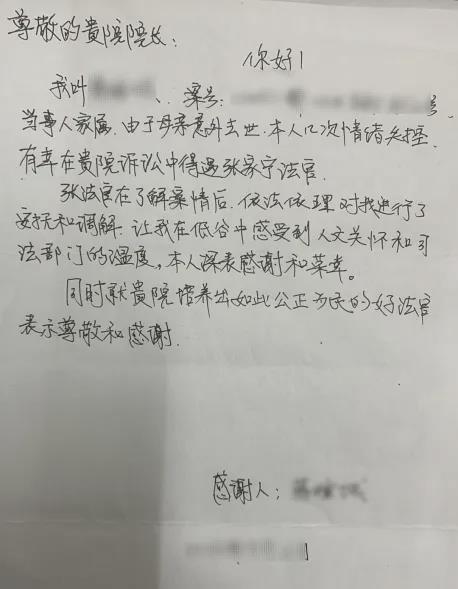 尊敬的贵院院长：
你好！
我叫 、案号： 号
当事人家属，由于母亲意外去世，本人几次情绪失控，
有幸在贵院诉讼中得遇张家宁法官。
张法官在了解案情后，依法依理对我进行了
安抚和调解，让我在低谷中感受到人文关怀和司
法部门的温度，本人深表感谢和荣幸。
同时就贵院培养出如此公正为民的好法官
表示尊敬和感谢。
感谢人：